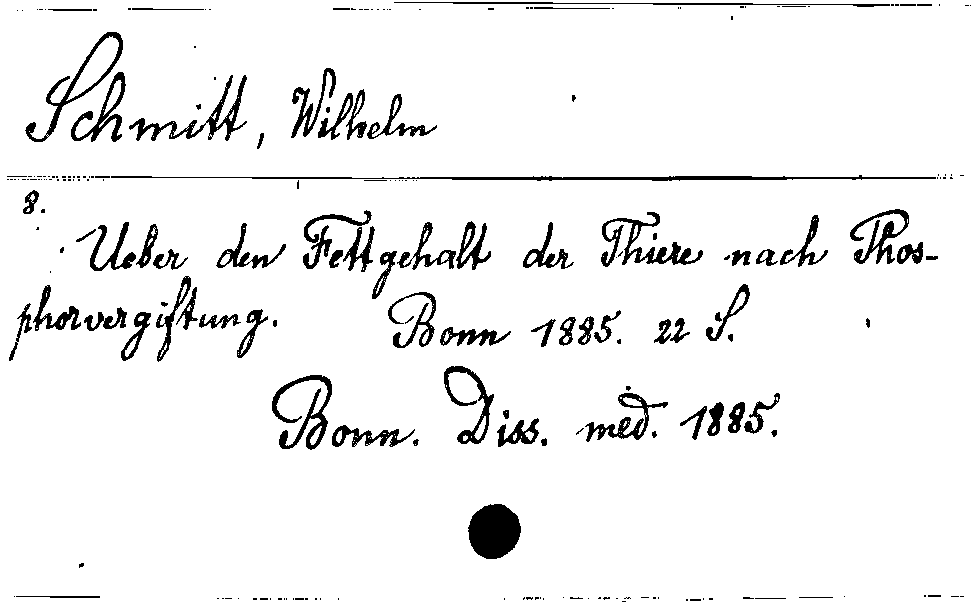 Schmitt, Wilhelm
8.
Ueber den Fettgehalt der Thiere nach Phos-
phorvergiftung. Bonn 1885. 22 S.
Bonn. Diss. med. 1885.